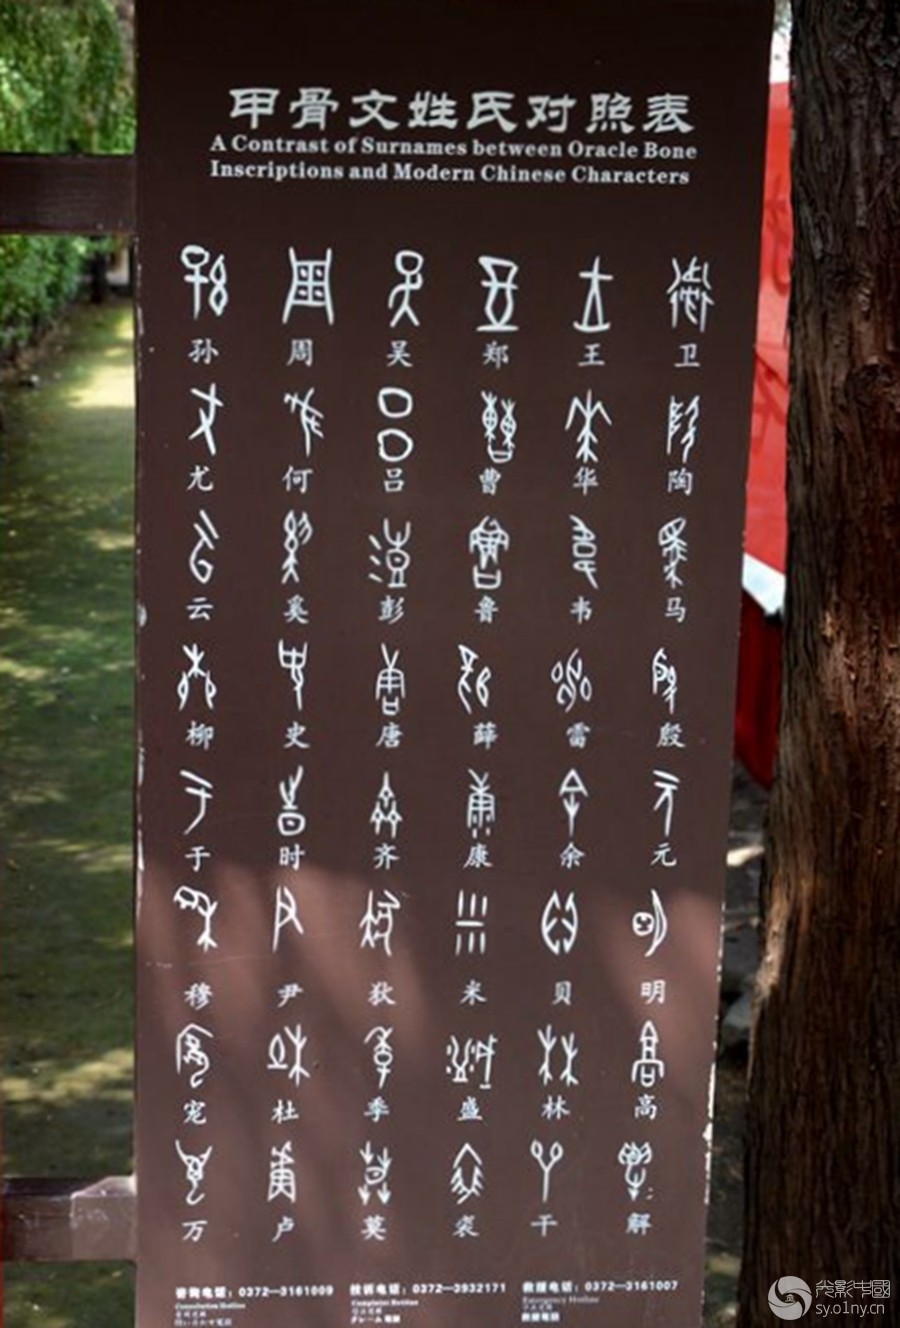 甲骨文姓氏对照表
A Contrast of Surnames between Oracle Bone
Inscriptions and Modern Chinese Characters
孙 周 吴 郑 王 卫
尤 何 吕 曹 华 陶
云 奚 彭 鲁 韦 马
柳 史 唐 薛 雷 殷
于 时 齐 康 余 元
穆 尹 狄 米 贝 明
宠 杜 季 盛 林 高
万 卢 莫 裘 干 解
咨询电话：0372—3161009 投诉电话：0372—3932171 救援电话：0372—3161007
Consultation Hotline Complaint Hotline Emergency Hotline
光影中國
sy.01ny.cn